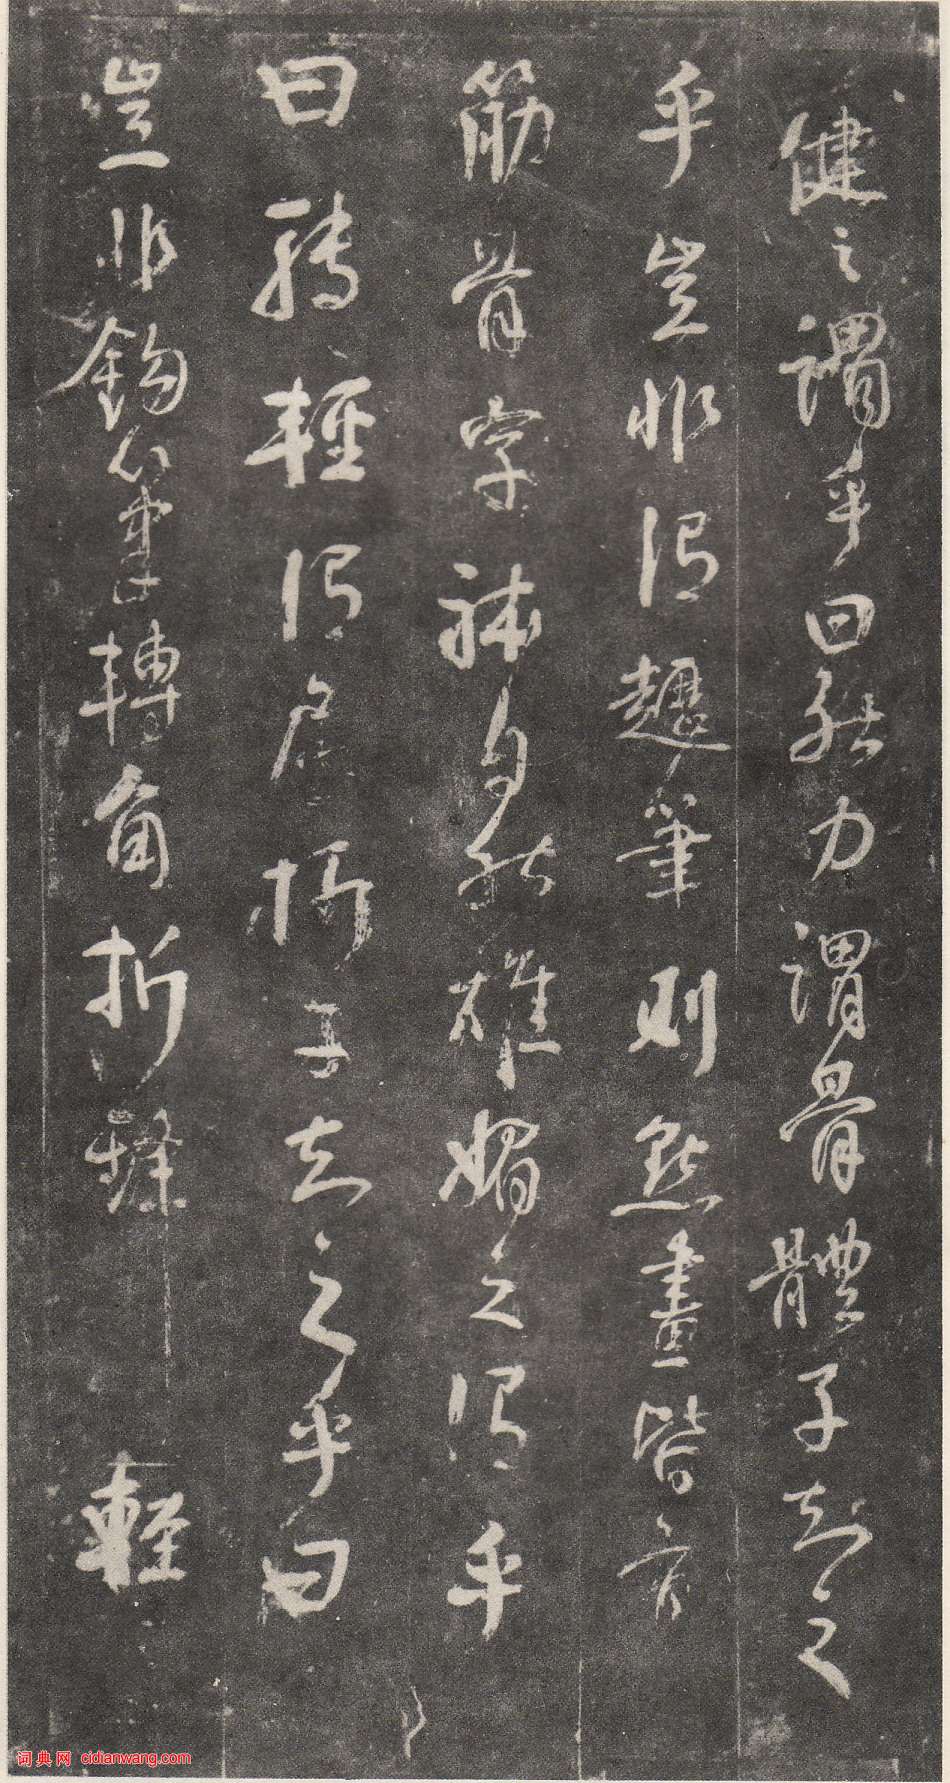 健之謂乎曰然力謂骨體子知之
乎豈非謂趯筆則點畫皆有
筋骨字體自然雄媚之謂乎
曰然輕謂屈折子知之乎曰
豈非鉤筆轉角折鋒輕
词典网 cidianwang.com